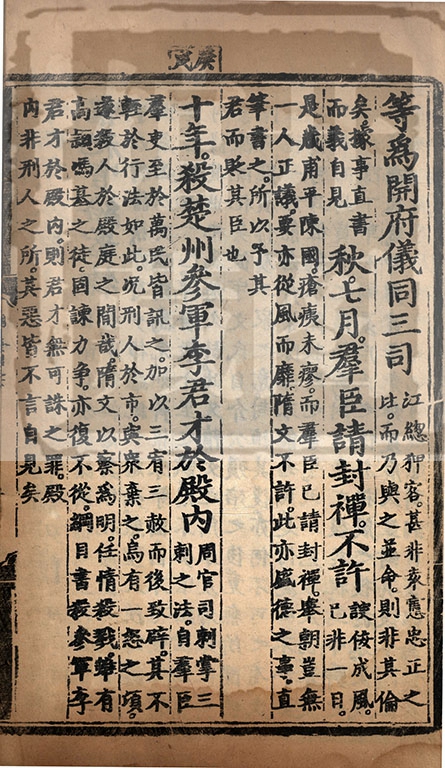 庚寅
等爲開府儀同三司
江總狎客。甚非袁應忠正之
比。而乃與之並命。則非其倫
矣。據事直書
而義自見
秋。七月。羣臣請封禪。不許
諛佞成風。
已非一日。
是歲甫平陳國。瘡痍未瘳。而羣臣已請封禪。舉朝豈無
一人正議。要亦從風而靡。隋文不許。此亦盛德之事。直
筆書之。所以予其
君而貶其臣也
十年。殺楚州參軍李君才於殿内
周官司刺掌三
刺之法。自羣臣
羣吏至於萬民皆訊之。加以三宥三赦而後致辟。其不
輕於行法如此。况刑人於市。與衆棄之。烏有一怒之頃。
遽殺人於殿庭之間哉。隋文以察爲明。任情殺戮。雖有
高熲馮基之徒。固諫力爭。亦復不從。綱目書殺參軍李
君才於殿内。則君才無可誅之罪。殿
内非刑人之所。其惡皆不言自見矣